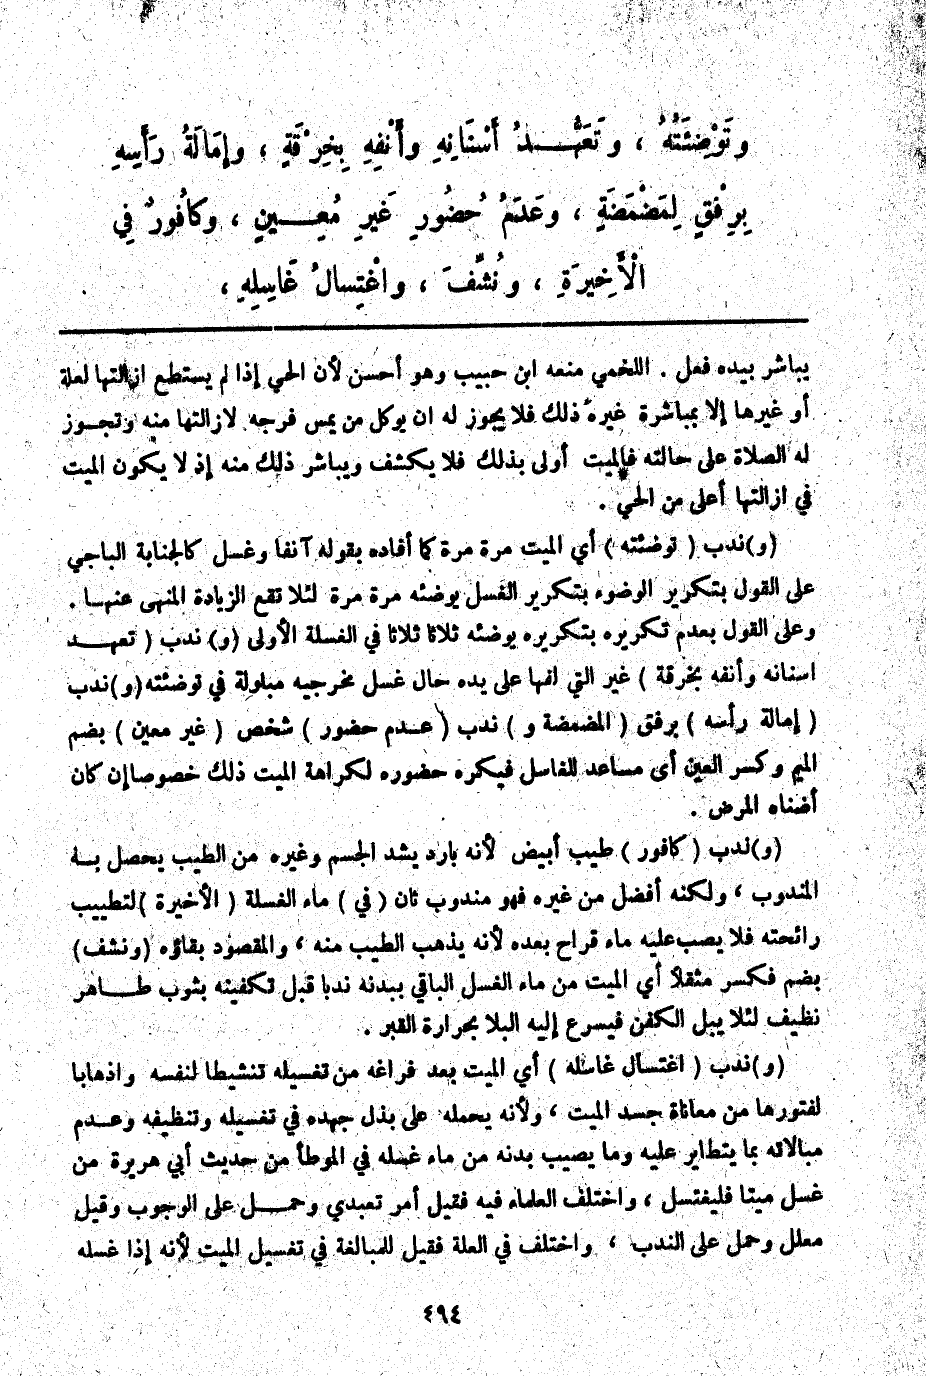 وتَوْضِئَتُهُ ، وتَعَهُّـــدُ أَسْنَانِهِ وأَنْفِهِ بِخِرْقَةٍ ، وإِمَالَةُ رَأْسِهِ
بِرِفْقٍ لِمَضْمَضَةٍ ، وعَدَمُ حُضُورِ غَيرِ مُعِـــينٍ ، وكافُورٌ فِي
الْأَخِيرَةِ ، ونُشِّفَ ، واغْتِسالُ غَاسِلِهِ ،
يباشر بيده فعل . اللخمي منعه ابن حبيب وهو أحسن لأن الحي إذا لم يستطع ازالتها لعلة
أو غيرها إلا بمباشرة غيره ذلك فلا يجوز له ان يوكل من يمس فرجه لازالتها منه وتجـوز
له الصلاة على حالته فالميت أولى بذلك فلا يكشف ويباشر ذلك منه إذ لا يكون الميت
في ازالتها أعلى من الحي .
(و)ندب ( توضئته ) أي الميت مرة مرة كما أفاده بقوله آنفا وغسل كالجنابة الباجي
على القول بتكرير الوضوء بتكرير الغسل يوضئه مرة مرة لئلا تقع الزيادة المنهى عنهـا .
وعلى القول بعدم تكريره بتكريره يوضئه ثلاثا ثلاثا في الغسلة الأولى (و) ندب ( تعهــد
اسنانه وأنفه بخرقة ) غير التي لفها على يده حال غسل مخرجيه مبلولة في توضئته(و)ندب
( إمالة رأسه ) برفق ( المضمضة و ) ندب ( عـدم حضور ) شخص ( غير معين ) بضم
الميم وكسر العين أى مساعد للغاسل فيكره حضوره لكراهة الميت ذلك خصوصاإن كان
أضناه المرض .
(و)ندب ( كافور ) طيب أبيض لأنه بارد يشد الجسم وغيره من الطيب يحصل بـه
المندوب ، ولكنه أفضل من غيره فهو مندوب ثان ( في ) ماء الغسلة ( الأخيرة )لتطييب
رائحته فلا يصب عليه ماء قراح بعده لأنه يذهب الطيب منه ، والمقصود بقاؤه (ونشف)
بضم فكسر مثقلا أي الميت من ماء الغسل الباقي ببدنه ندبا قبل تكفينه بثوب طـــاهر
نظيف لئلا يبل الكفن فيسرع إليه البلا بحرارة القبر .
(و)ندب ( اغتسال غاسله ) أي الميت بعد فراغه من تغسيله تنشيطا لنفسه واذهابا
لفتورها من معاناة جسد الميت ، ولأنه يحمله على بذل جهده في تغسيله وتنظيفه وعـدم
مبالاته بما يتطاير عليه وما يصيب بدنه من ماء غسله في الموطأ من حديث أبي هريرة من
غسل ميتا فليغتسل ، واختلف العلماء فيه فقيل أمر تعبدي وحمـــل على الوجوب وقيل
معلل وحمل على الندب ، واختلف في العلة فقيل للمبالغة في تغسيل الميت لأنه إذا غسله
٤٩٤